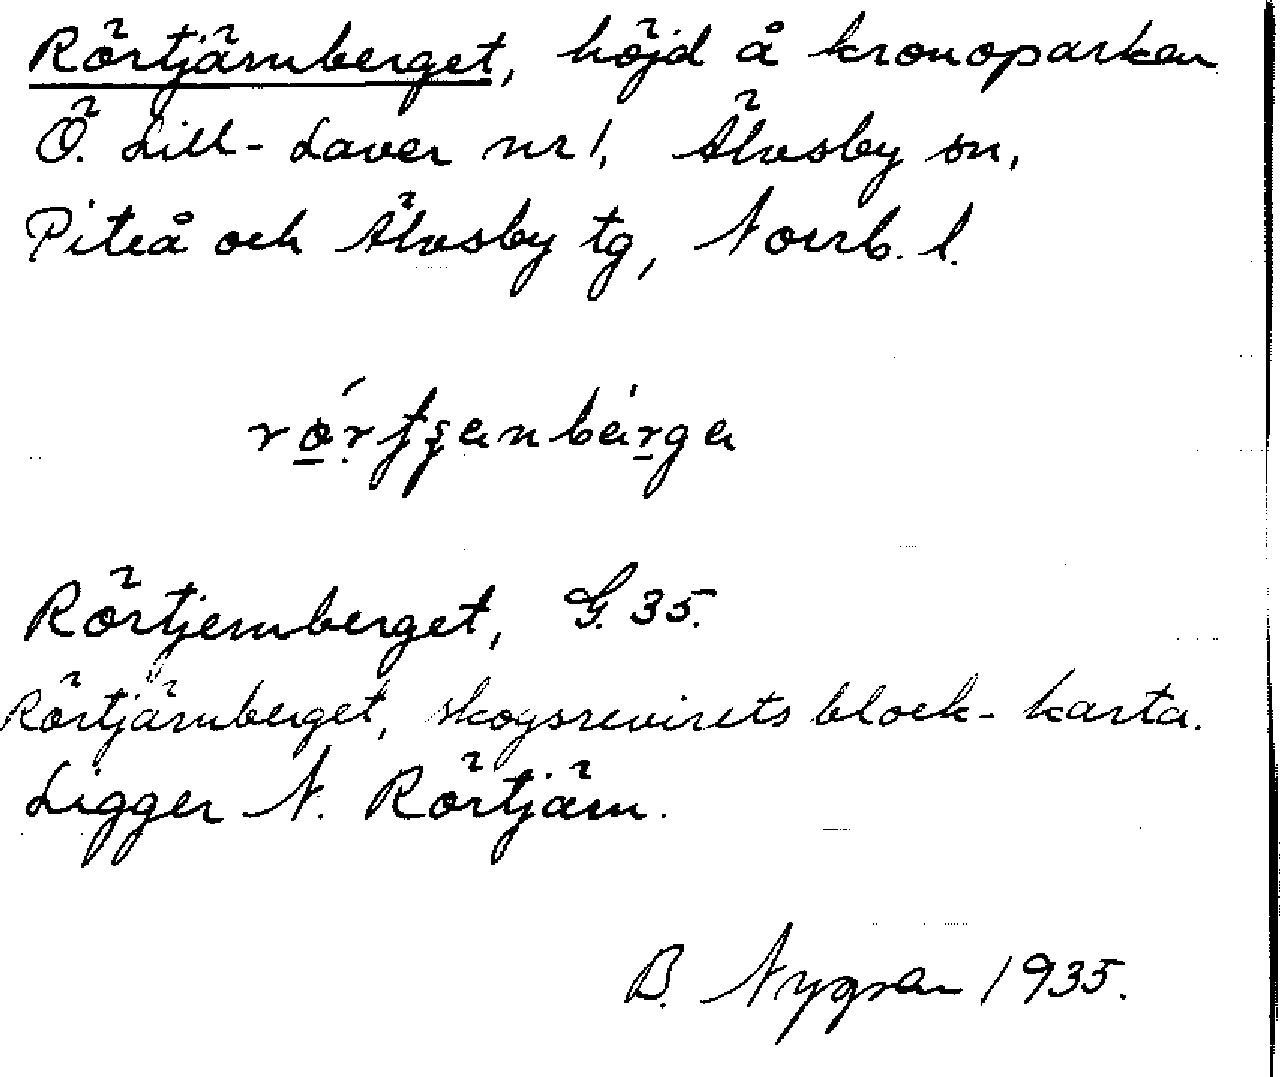 Rörtjärnberget, höjd å kronoparken
Ö. Lill-Laver nr 1, Älvsby sn,
Piteå och Älvsby tg, Norrb. l.
Rörtjernberget, G. 35.
Rörtjärnberget, skogsrevirets block-karta.
Ligger N. Rörtjärn.
B. Nygren 1935.